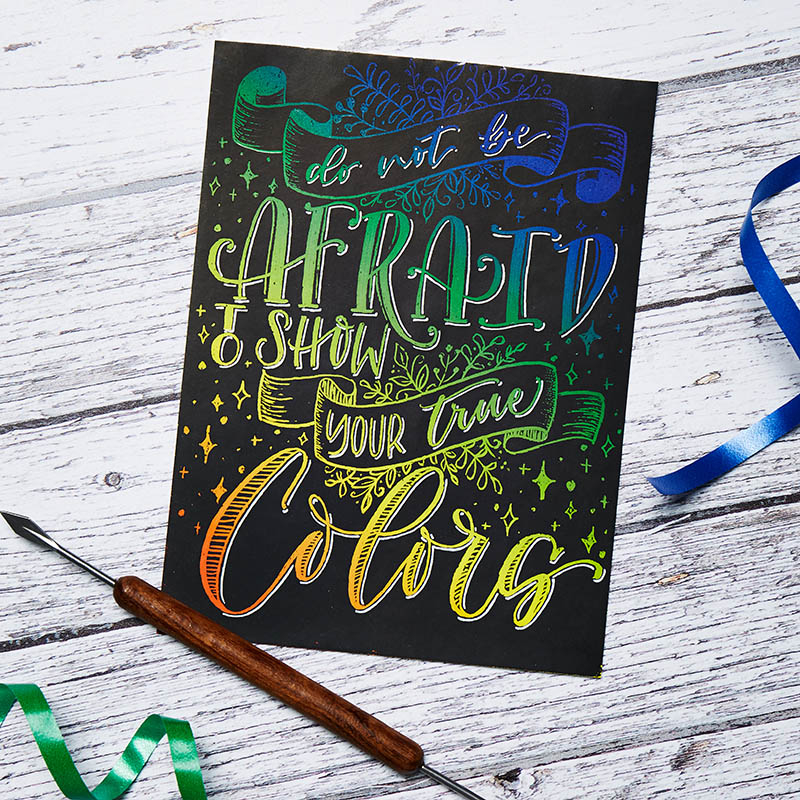 do not be
AFRAID
TO SHOW
YOUR true
Colors